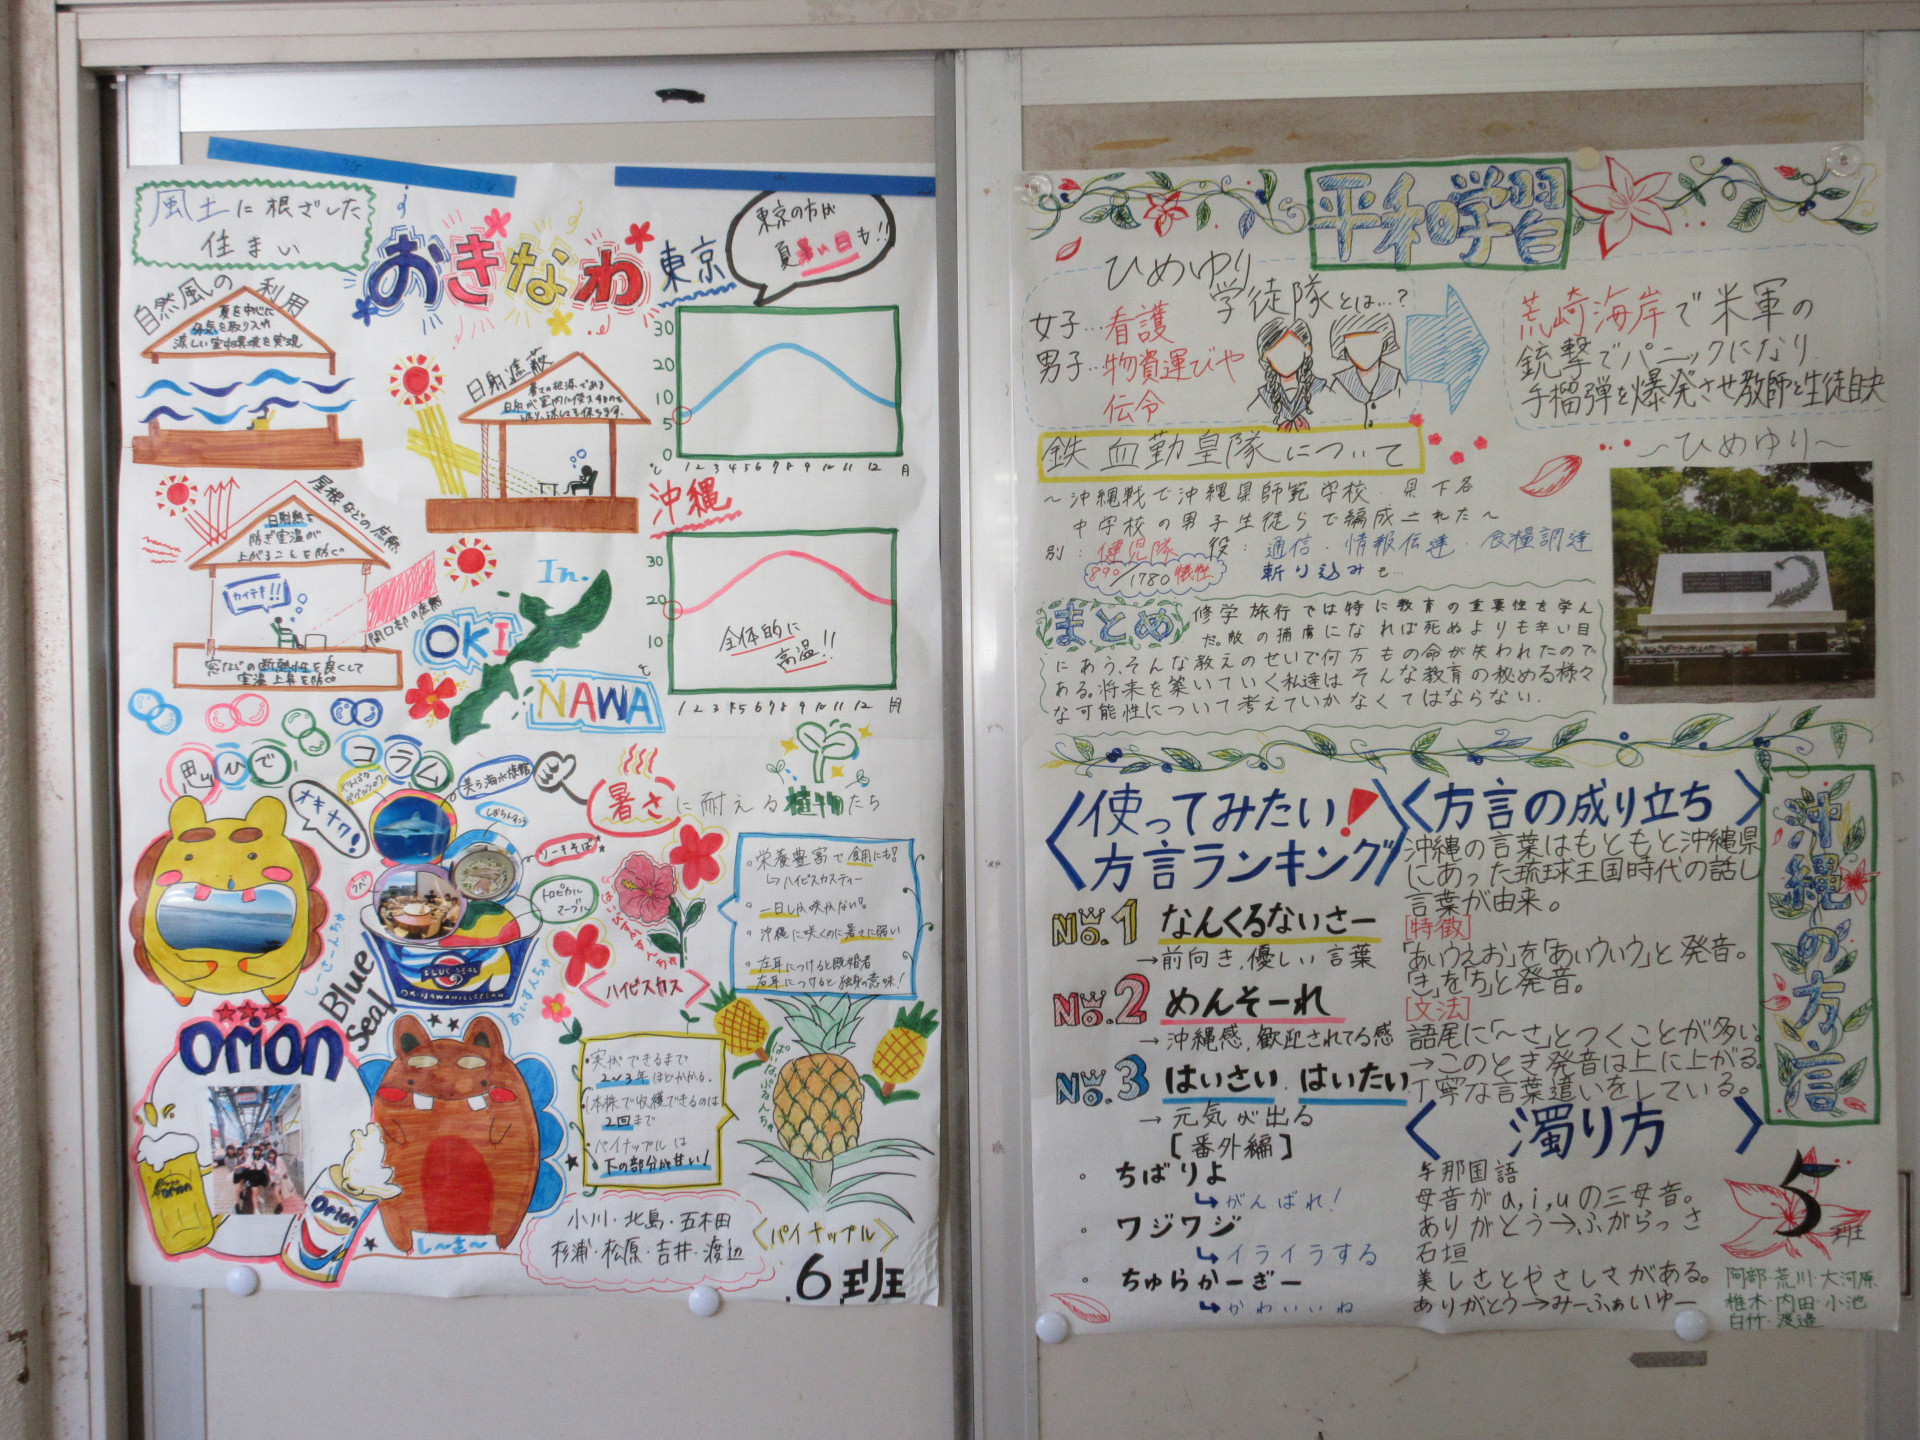 風土に根ざした
住まい
おきなわ
東京
東京の方が
夏暑い日も!!
自然風の利用
夏を中心に
外気を取り入れ
涼しい室内環境を実現
日射遮蔽
暑さの根源である
日射が室内に侵入するのを
30
20
10
5
0
℃ 1 2 3 4 5 6 7 8 9 10 11 12 月
沖縄
30
20
10
℃
全体的に
高温!!
1 2 3 4 5 6 7 8 9 10 11 12 月
屋根などの点熱
日射熱を
防ぎ室温が
上がることを防ぐ
カイテキ!!
開口部の点熱
窓などの断熱性を良くして
室温上昇を防ぐ
In.
OKI
NAWA
コラム
オキナワ!
美ら海水族館
ソーキそば
トロピカル
マーブル
BLUE SEAL
OKINAWAN ICE CREAM
しーさーんちゅ
Blue
Seal
あいすんちゅ
暑さに耐える植物たち
・栄養豊富で食用にも?
↳ハイビスカスティー
・一日しか咲かない。
・沖縄に咲くのに暑さに弱い
・左耳につけると既婚者
右耳につけると独身の意味!
はいびすかすんちゅ
<ハイビスカス>
Orion
Orion
Orion
し〜さ〜
・実ができるまで
2〜3年ほどかかる.
・1本株で収穫できるのは
2回まで
・パイナップルは
下の部分が甘い!
ぱいなっぷるんちゅ
<パイナップル>
小川・北島・五木田
杉浦・松原・吉井・渡辺
6班
平和学習
ひめゆり
学徒隊とは…?
女子…看護
男子…物資運びや
伝令
荒崎海岸で米軍の
銃撃でパニックになり
手榴弾を爆発させ教師と生徒自決
鉄血勤皇隊について
〜沖縄戦で沖縄県師範学校.県下各
中学校の男子生徒らで編成された〜
別:健児隊 役:通信.情報伝達.食糧調達
890/1780犠牲 斬り込みも…
〜ひめゆり〜
まとめ
修学旅行では特に教育の重要性を学ん
だ.敵の捕虜になれば死ぬよりも辛い目
にあう.そんな教えのせいで何万もの命が失われたので
ある.将来を築いていく私達はそんな教育の秘める様々
な可能性について考えていかなくてはならない.
<使ってみたい!
方言ランキング>
No.1 なんくるないさー
→前向き.優しい言葉
No.2 めんそーれ
→沖縄感.歓迎されてる感
No.3 はいさい.はいたい
→元気が出る
[番外編]
・ちばりよ
↳がんばれ!
・ワジワジ
↳イライラする
・ちゅらかーぎー
↳かわいいね
<方言の成り立ち>
沖縄の言葉はもともと沖縄県
にあった琉球王国時代の話し
言葉が由来。
[特徴]
「あいうえお」を「あいういう」と発音。
「き」を「ち」と発音。
[文法]
語尾に「〜さ」とつくことが多い。
→このとき発音は上に上がる。
丁寧な言葉遣いをしている。
<濁り方>
与那国語
母音がa,i,uの三母音。
ありがとう→ふがらっさ
石垣
美しさとやさしさがある。
ありがとう→みーふぁいゆー
沖縄の方言
5班
阿部・荒川・大河原
椎木・内田・小池
白竹・渡邉